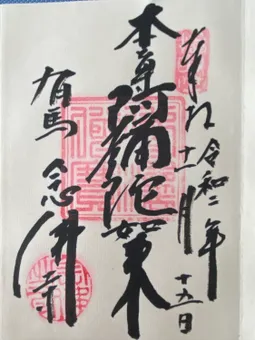 奉拝 令和二年
十一月 十五日
本尊 阿弥陀如来
有馬 念佛寺